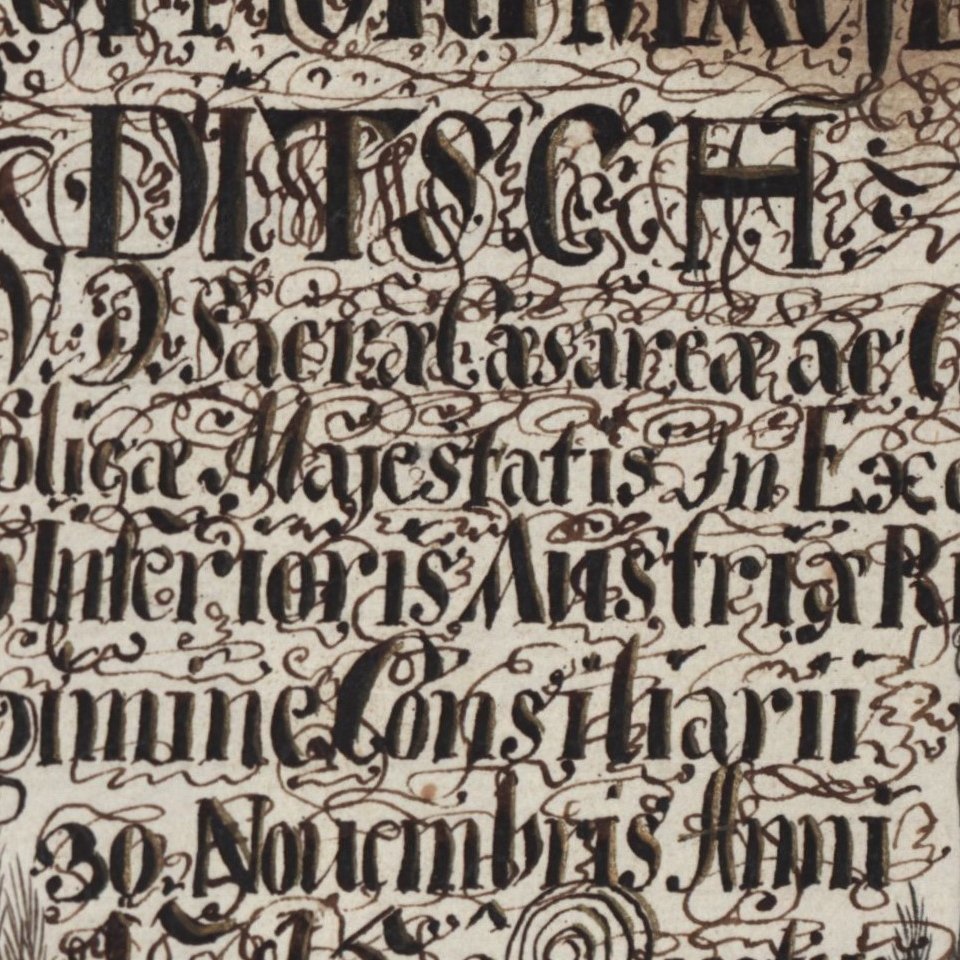 DITSCH
V. D. Sacræ Cæsareæ ac C
olicæ Majestatis In Exc
Inferioris Austriæ R
imine Consiliarii
30 Nouembris Anni